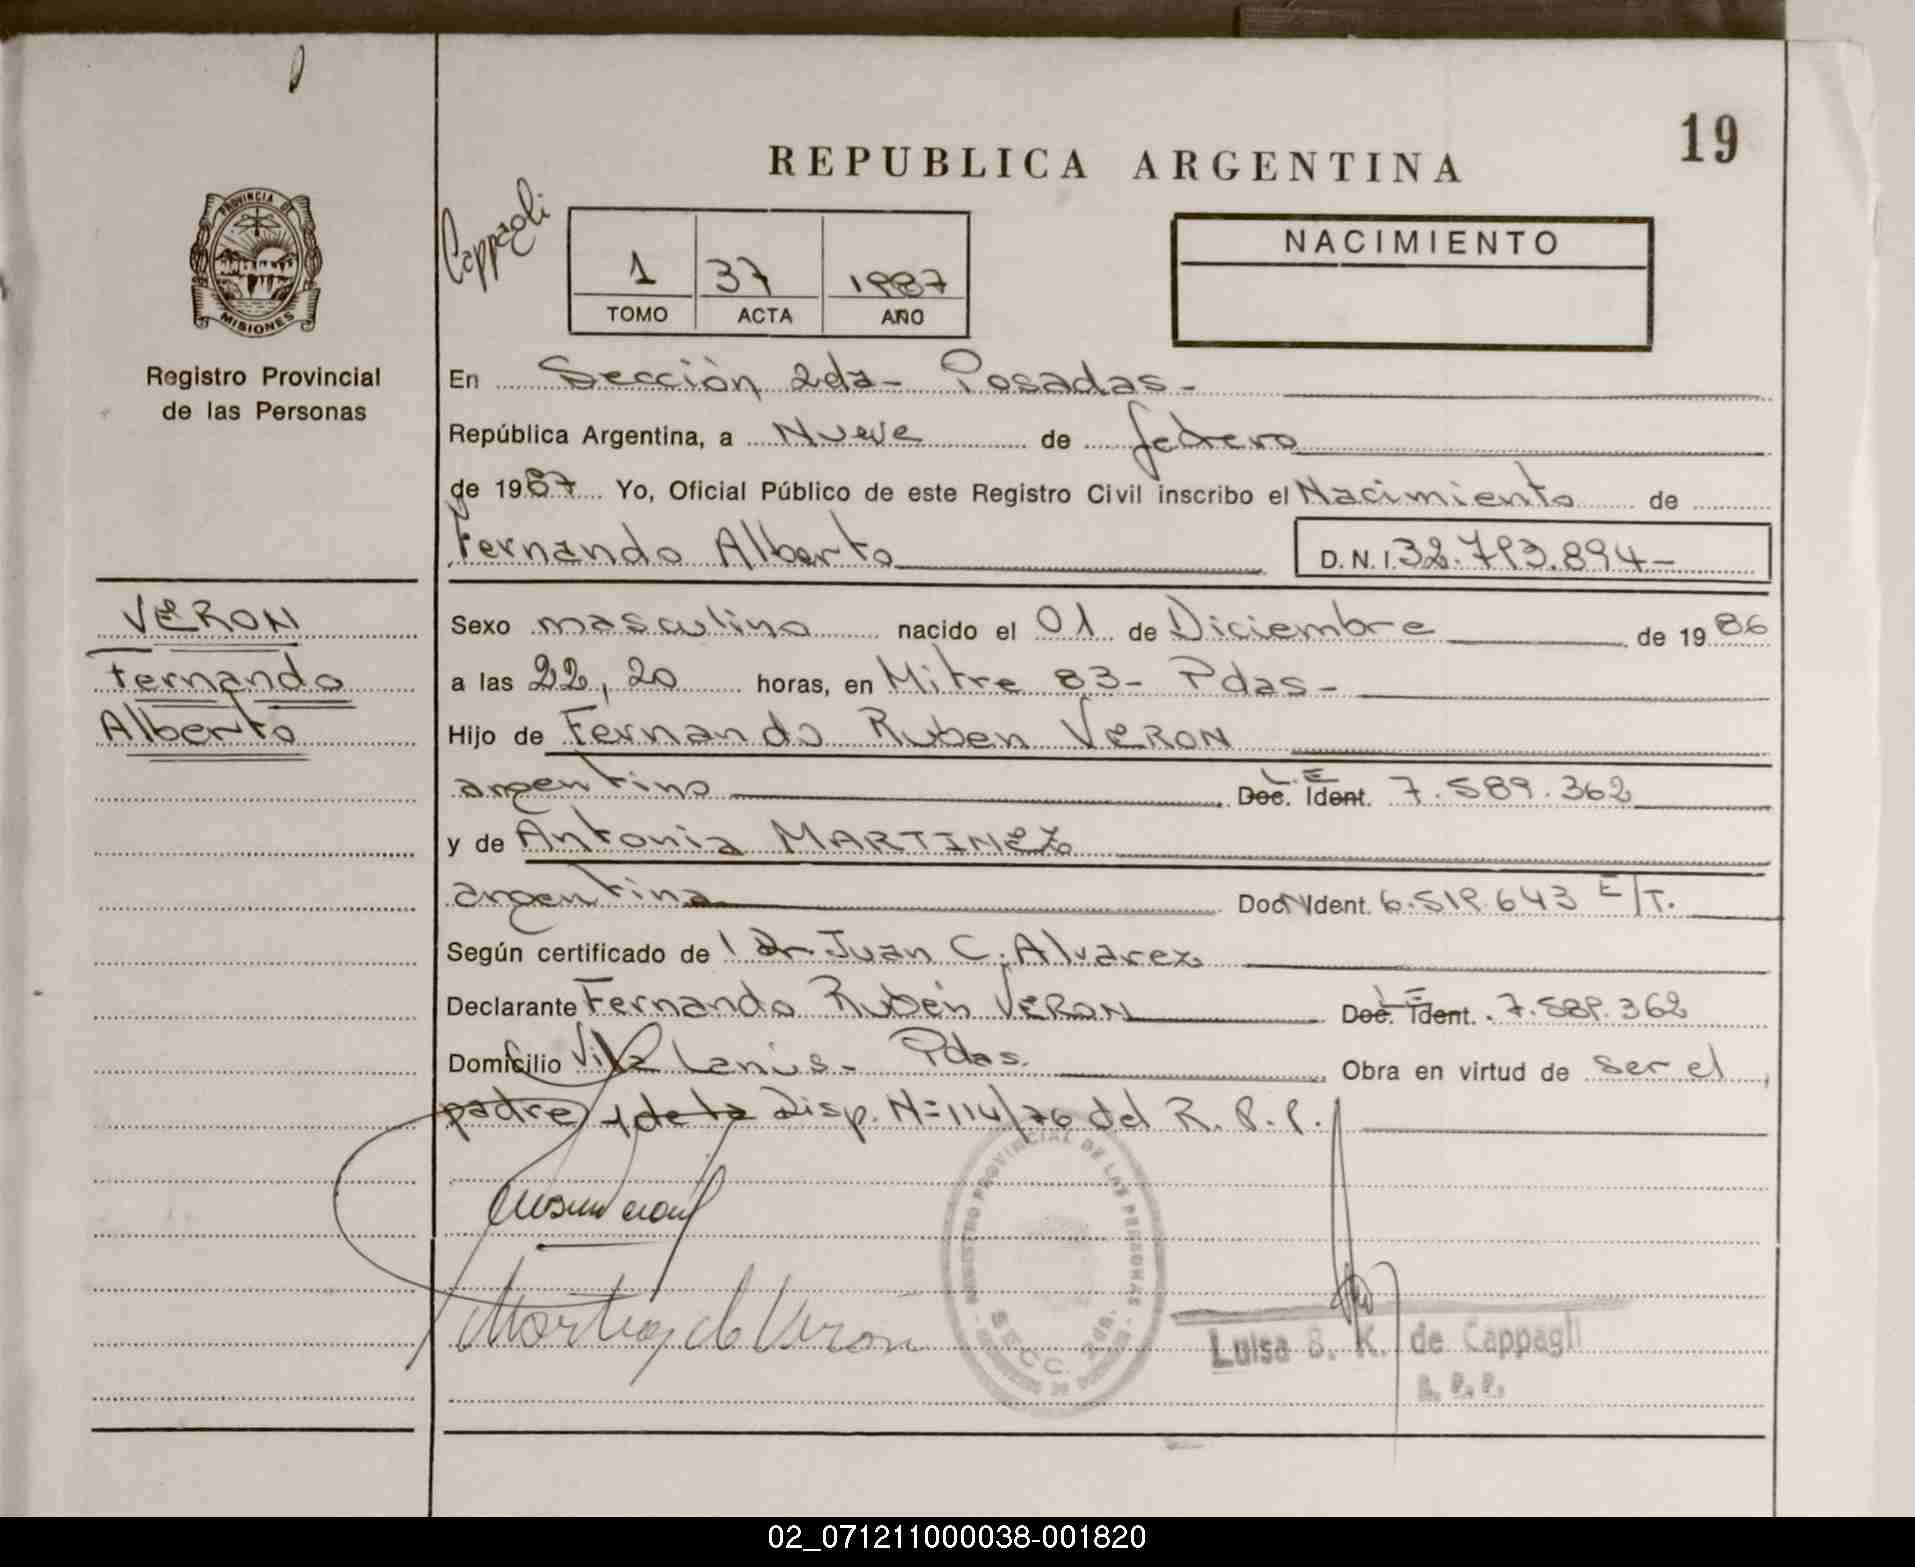 19
REPUBLICA ARGENTINA
PROVINCIA DE
MISIONES
Registro Provincial
de las Personas
Cappagli
1 37 1987
TOMO ACTA AÑO
NACIMIENTO
En Sección 2da- Posadas-
República Argentina, a Nueve de febrero
de 1987 Yo, Oficial Público de este Registro Civil inscribo el Nacimiento de
Fernando Alberto D.N.I. 32.793.894-
VERON
Fernando
Alberto
Sexo masculino nacido el 01 de Diciembre de 1986
a las 22,20 horas, en Mitre 83- Pdas-
Hijo de Fernando Ruben VERON
argentino L.E Doc. Ident. 7.589.362
y de Antonia MARTINEZ
argentina Doc. Ident. 6.519.643 E/T.
Según certificado de l Dr. Juan C. Alvarez
Declarante Fernando Rubén VERON L.E Doc. Ident. 7.589.362
Domicilio Villa Lanús- Pdas. Obra en virtud de ser el
padre y de la Disp. N=114/76 del R.P.P.
REGISTRO PROVINCIAL DE LAS PERSONAS
SECC. 2da.
Martinez de Veron
Luisa B. K. de Cappagli
02_071211000038-001820